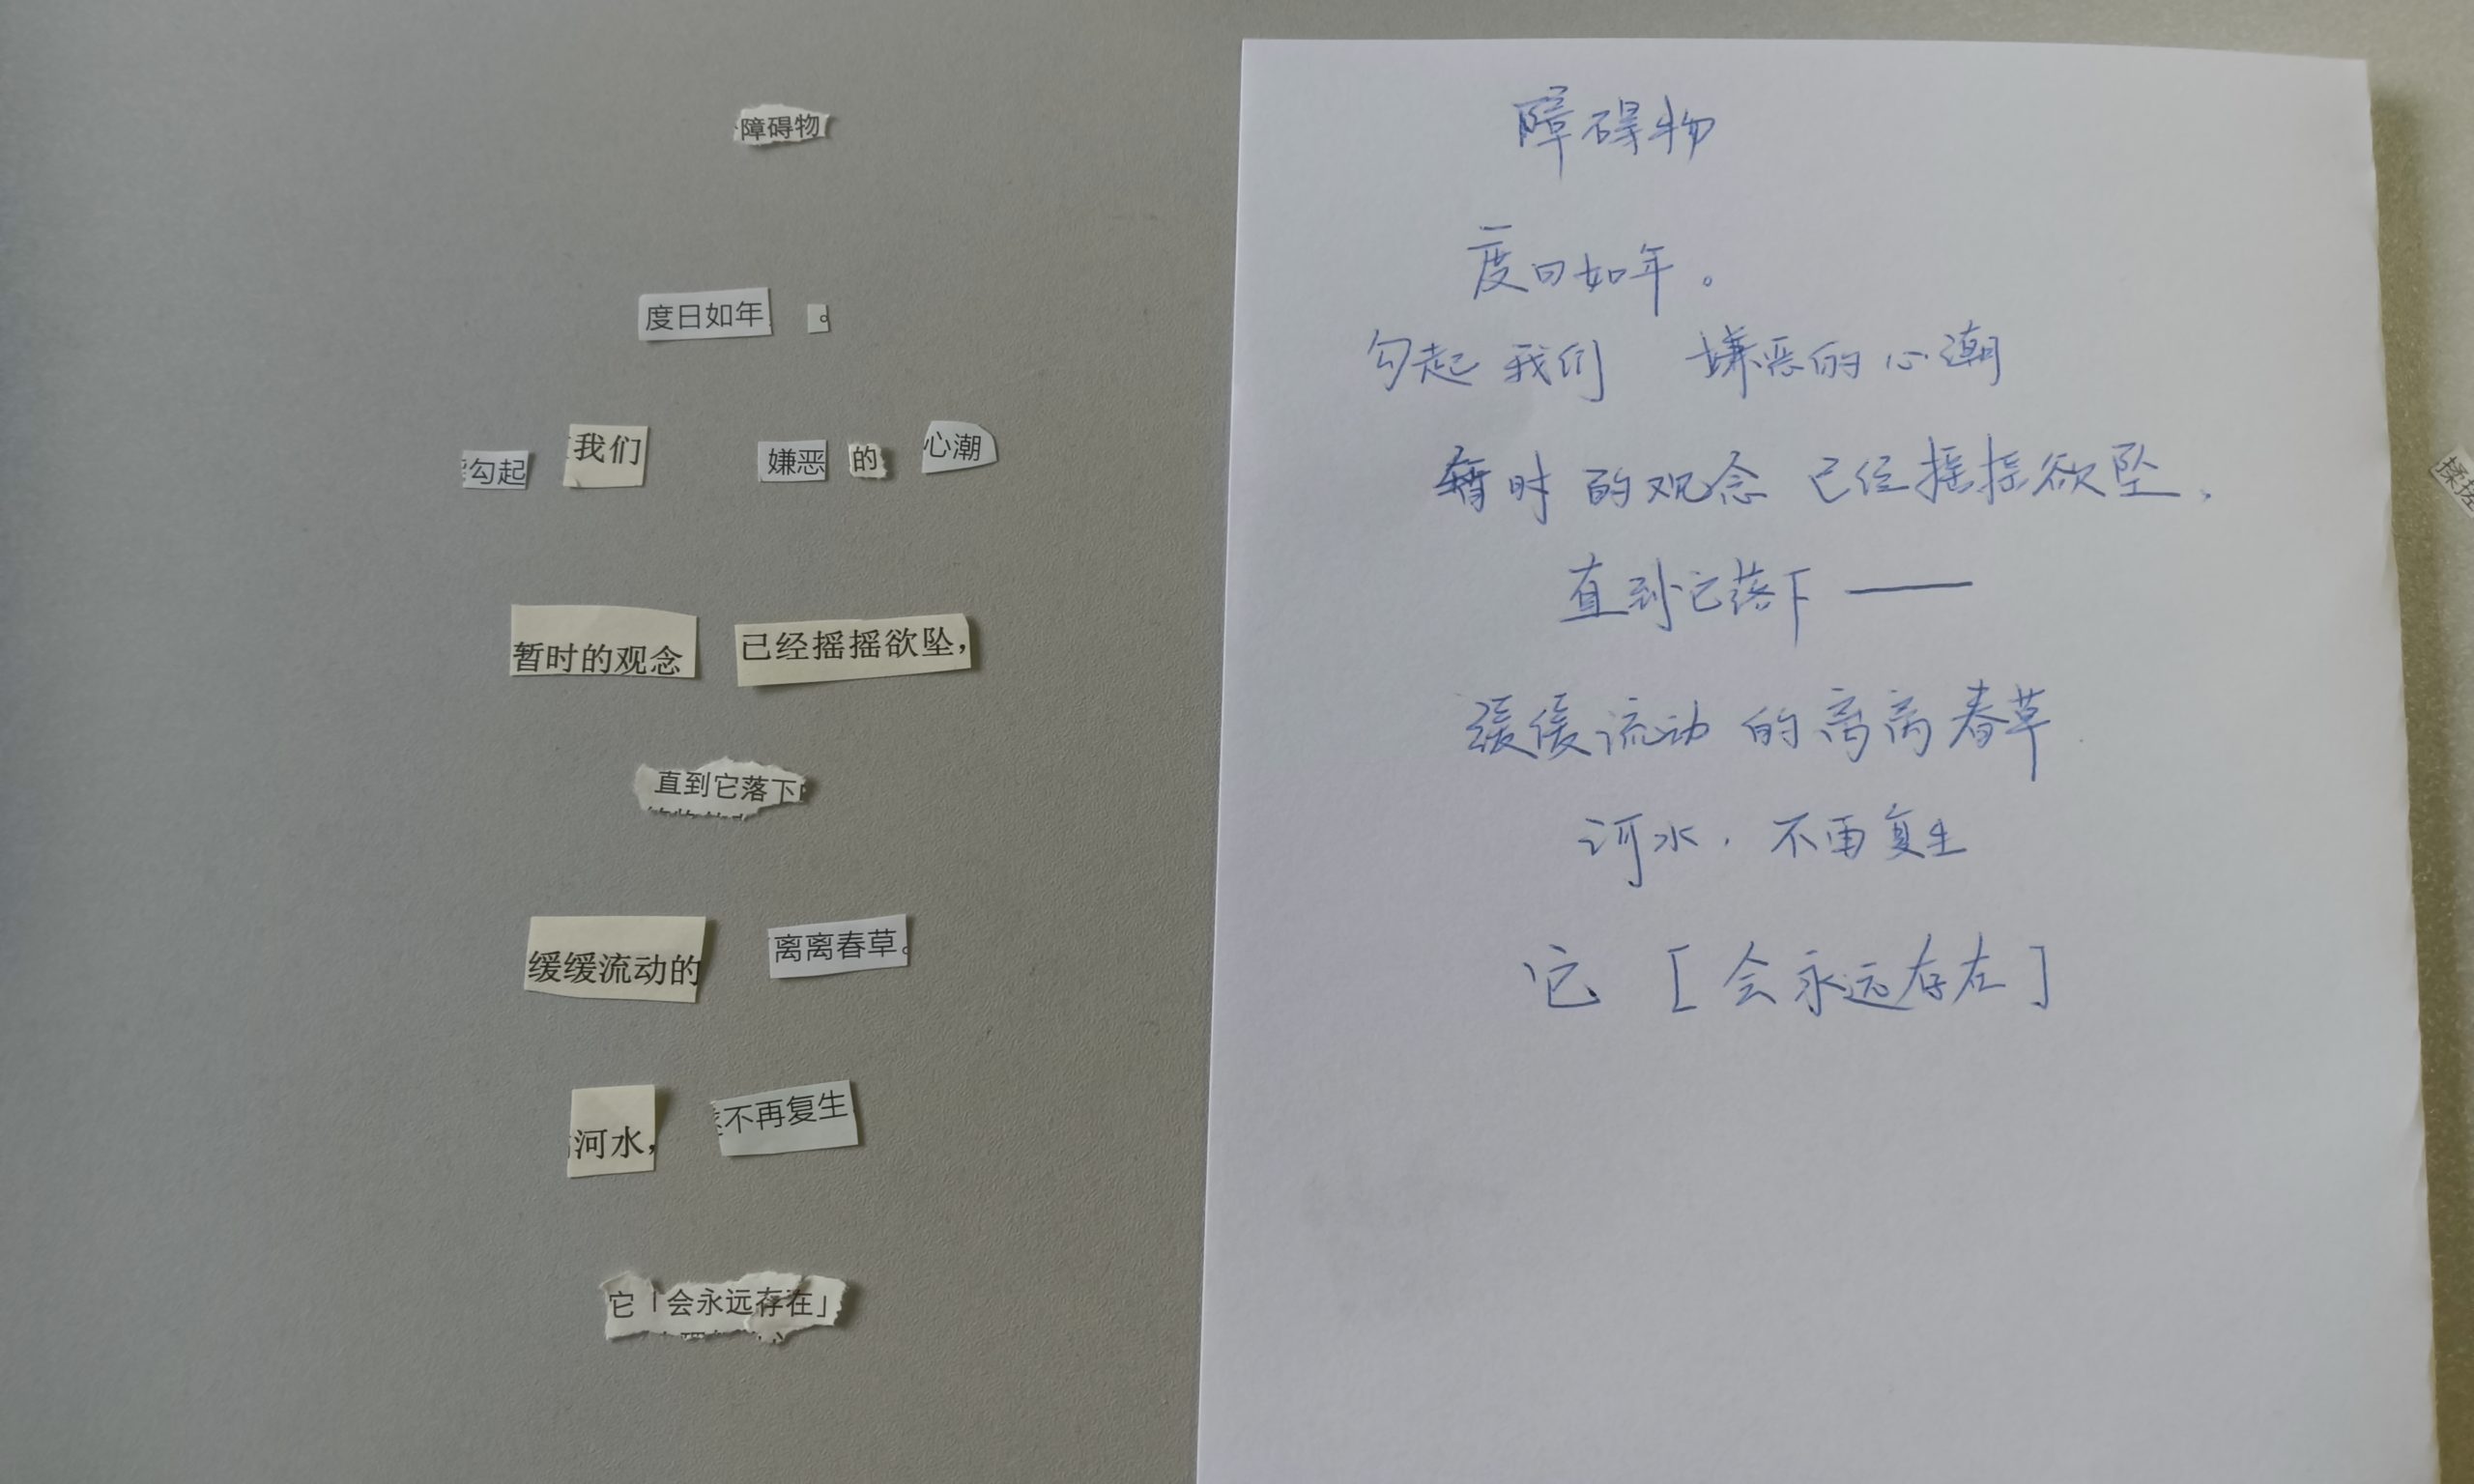 障碍物
度日如年。
勾起 我们 嫌恶 的 心潮
暂时的观念 已经摇摇欲坠，
直到它落下
缓缓流动的 离离春草。
河水， 不再复生
它「会永远存在」
障碍物
度日如年。
勾起我们 嫌恶的心潮
暂时的观念 已经摇摇欲坠，
直到它落下——
缓缓流动的离离春草
河水，不再复生
它 [会永远存在]
揉搓